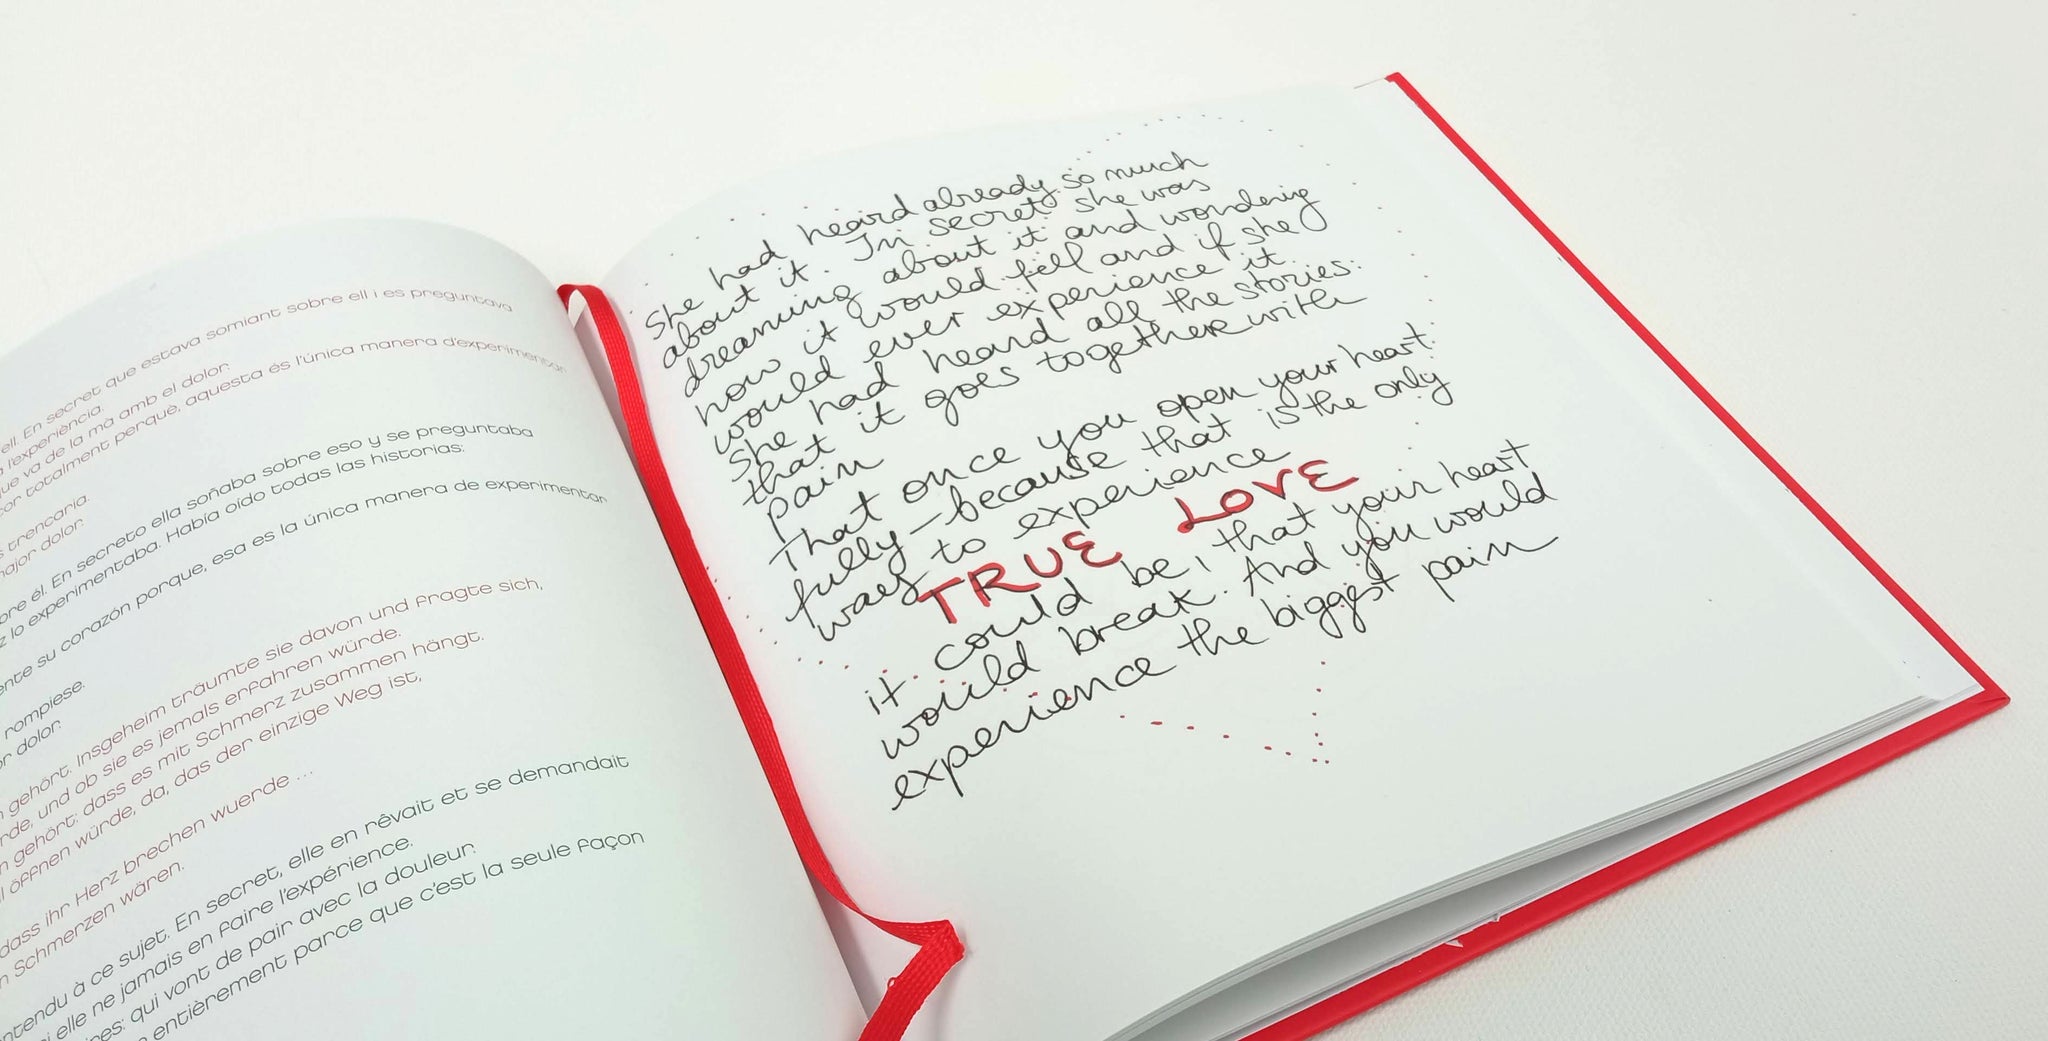 ell. En secret que estava somiant sobre ell i es preguntava
l'experiència.
que va de la mà amb el dolor.
cor totalment perquè, aquesta és l'única manera d'experimentar
s trencaria.
major dolor.
bre él. En secreto ella soñaba sobre eso y se preguntaba
z lo experimentaba. Había oido todas las historias:
ente su corazón porque, esa es la única manera de experimentar
rompiese.
or dolor.
gehört. Insgeheim träumte sie davon und fragte sich,
rde, und ob sie es jemals erfahren würde.
n gehört: dass es mit Schmerz zusammen hängt.
l öffnen würde, da, das der einzige Weg ist,
dass ihr Herz brechen wuerde ...
n Schmerzen wären.
ntendu à ce sujet. En secret, elle en rêvait et se demandait
si elle ne jamais en faire l'expérience.
ires: qui vont de pair avec la douleur.
entièrement parce que c'est la seule façon
She had heard already so much
about it. In secret she was
dreaming about it and wondering
how it would fell and if she
would ever experience it.
She had heard all the stories:
that it goes togethere with
pain
That once you open your heart
fully - because that is the only
way to experience
TRUE LOVE
it could be, that your heart
would break. And you would
experience the biggest pain